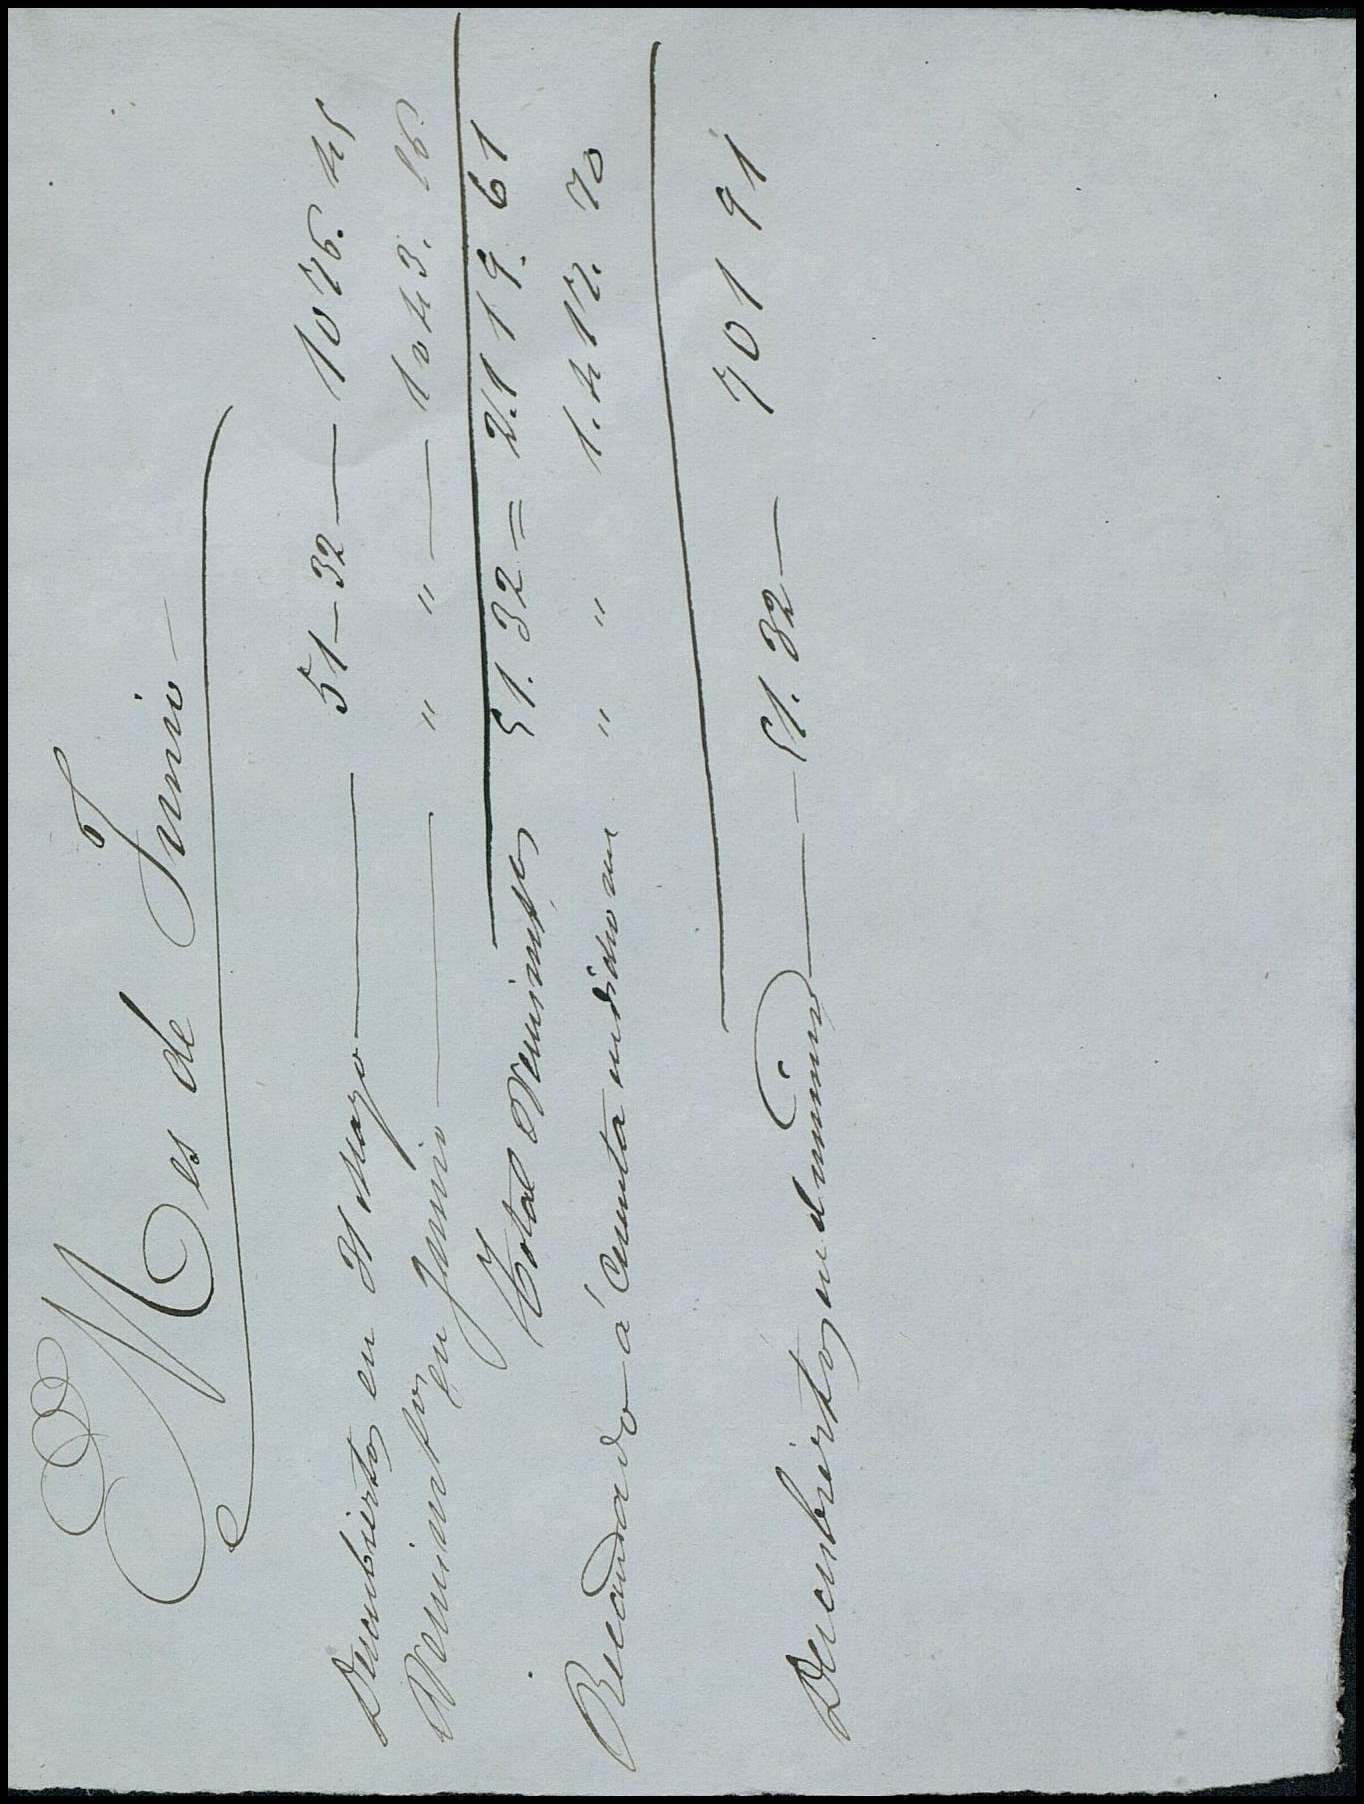 Mes de Junio
Descubiertos en 31 Mayo — 51-32 — 1076. 45
Vencimtos en Junio — " " — 1043. 16
Total Vencimtos 51. 32 = 2.119. 61
Recaudado á Cuenta en dicho mes " " 1.417. 70
Descubiertos en — 51. 32 — 701 91